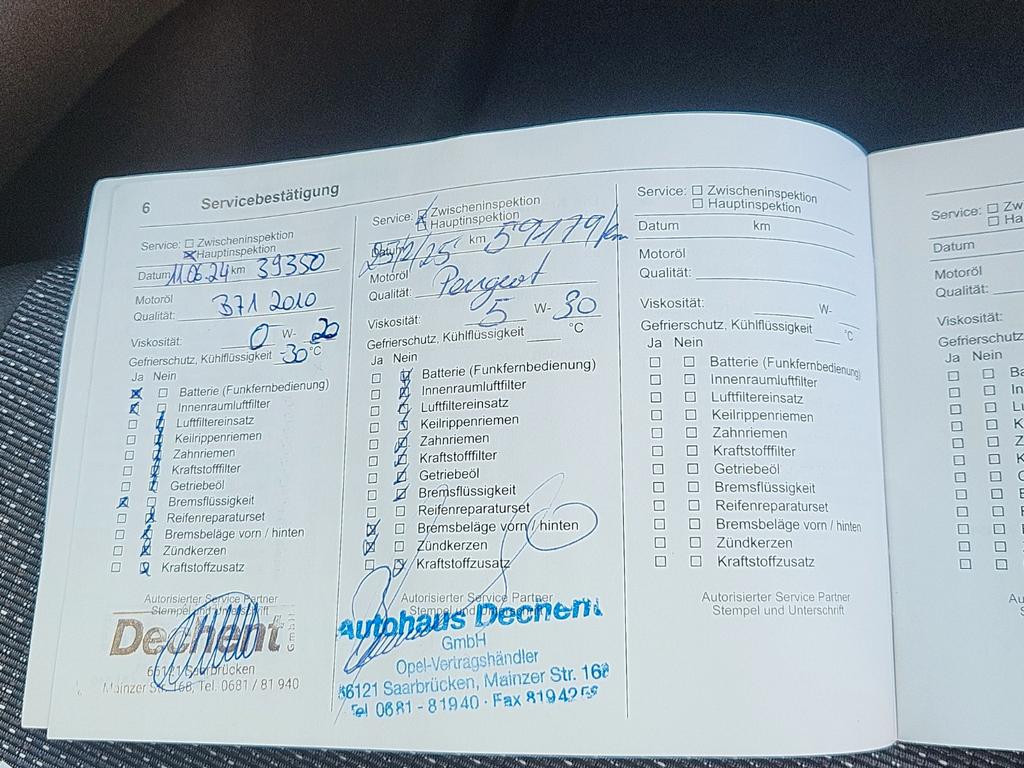 6 Servicebestätigung
Service: Zwischeninspektion
Hauptinspektion
Datum 11.06.24 km 39350
Motoröl
Qualität: B71 2010
Viskosität: 0 W- 20
Gefrierschutz, Kühlflüssigkeit -30 °C
Ja Nein
Batterie (Funkfernbedienung)
Innenraumluftfilter
Luftfiltereinsatz
Keilrippenriemen
Zahnriemen
Kraftstofffilter
Getriebeöl
Bremsflüssigkeit
Reifenreparaturset
Bremsbeläge vorn / hinten
Zündkerzen
Kraftstoffzusatz
Autorisierter Service Partner
Stempel und Unterschrift
Dechent
66121 Saarbrücken
Mainzer Str. 168, Tel. 0681 / 81 940
Service: Zwischeninspektion
Hauptinspektion
Datum 25/2/25 km 59179 km
Motoröl
Qualität: Peugeot
Viskosität: 5 W- 30
Gefrierschutz, Kühlflüssigkeit °C
Ja Nein
Batterie (Funkfernbedienung)
Innenraumluftfilter
Luftfiltereinsatz
Keilrippenriemen
Zahnriemen
Kraftstofffilter
Getriebeöl
Bremsflüssigkeit
Reifenreparaturset
Bremsbeläge vorn / hinten
Zündkerzen
Kraftstoffzusatz
Autorisierter Service Partner
Stempel und Unterschrift
Autohaus Dechent
GmbH
Opel-Vertragshändler
66121 Saarbrücken, Mainzer Str. 168
Tel 0681 - 81940 · Fax
Service: Zwischeninspektion
Hauptinspektion
Datum km
Motoröl
Qualität:
Viskosität: W-
Gefrierschutz, Kühlflüssigkeit °C
Ja Nein
Batterie (Funkfernbedienung)
Innenraumluftfilter
Luftfiltereinsatz
Keilrippenriemen
Zahnriemen
Kraftstofffilter
Getriebeöl
Bremsflüssigkeit
Reifenreparaturset
Bremsbeläge vorn / hinten
Zündkerzen
Kraftstoffzusatz
Autorisierter Service Partner
Stempel und Unterschrift
Service: Zw
Ha
Datum
Motoröl
Qualität:
Viskosität:
Gefrierschutz
Ja Nein